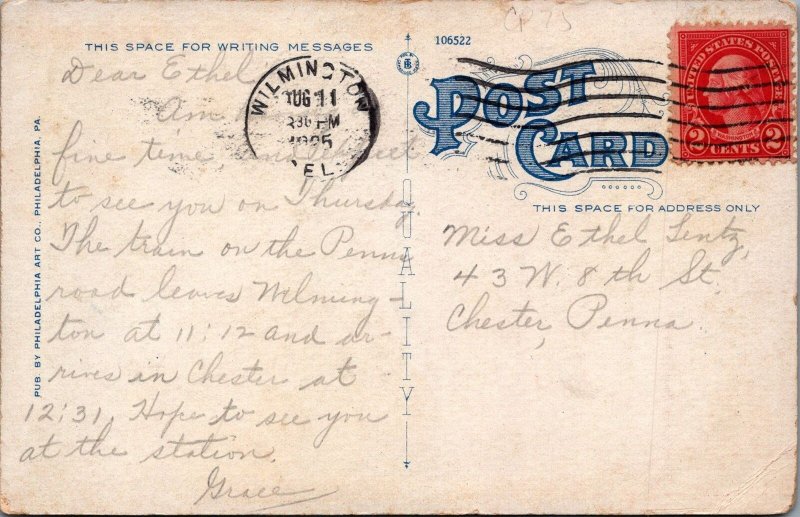 CP 75
THIS SPACE FOR WRITING MESSAGES
106522
POST
CARD
UNITED STATES POSTAGE
2 CENTS 2
WILMINGTON
AUG 11
PM
1925
DEL.
THIS SPACE FOR ADDRESS ONLY
PUB. BY PHILADELPHIA ART CO., PHILADELPHIA, PA.
QUALITY
Dear Ethel
Am
fine time and expect
to see you on Thursday
The train on the Penna
road leaves Wilming-
ton at 11:12 and ar-
rives in Chester at
12:31. Hope to see you
at the station.
Grace
Miss Ethel Lentz,
43 W. 8th St.
Chester, Penna.